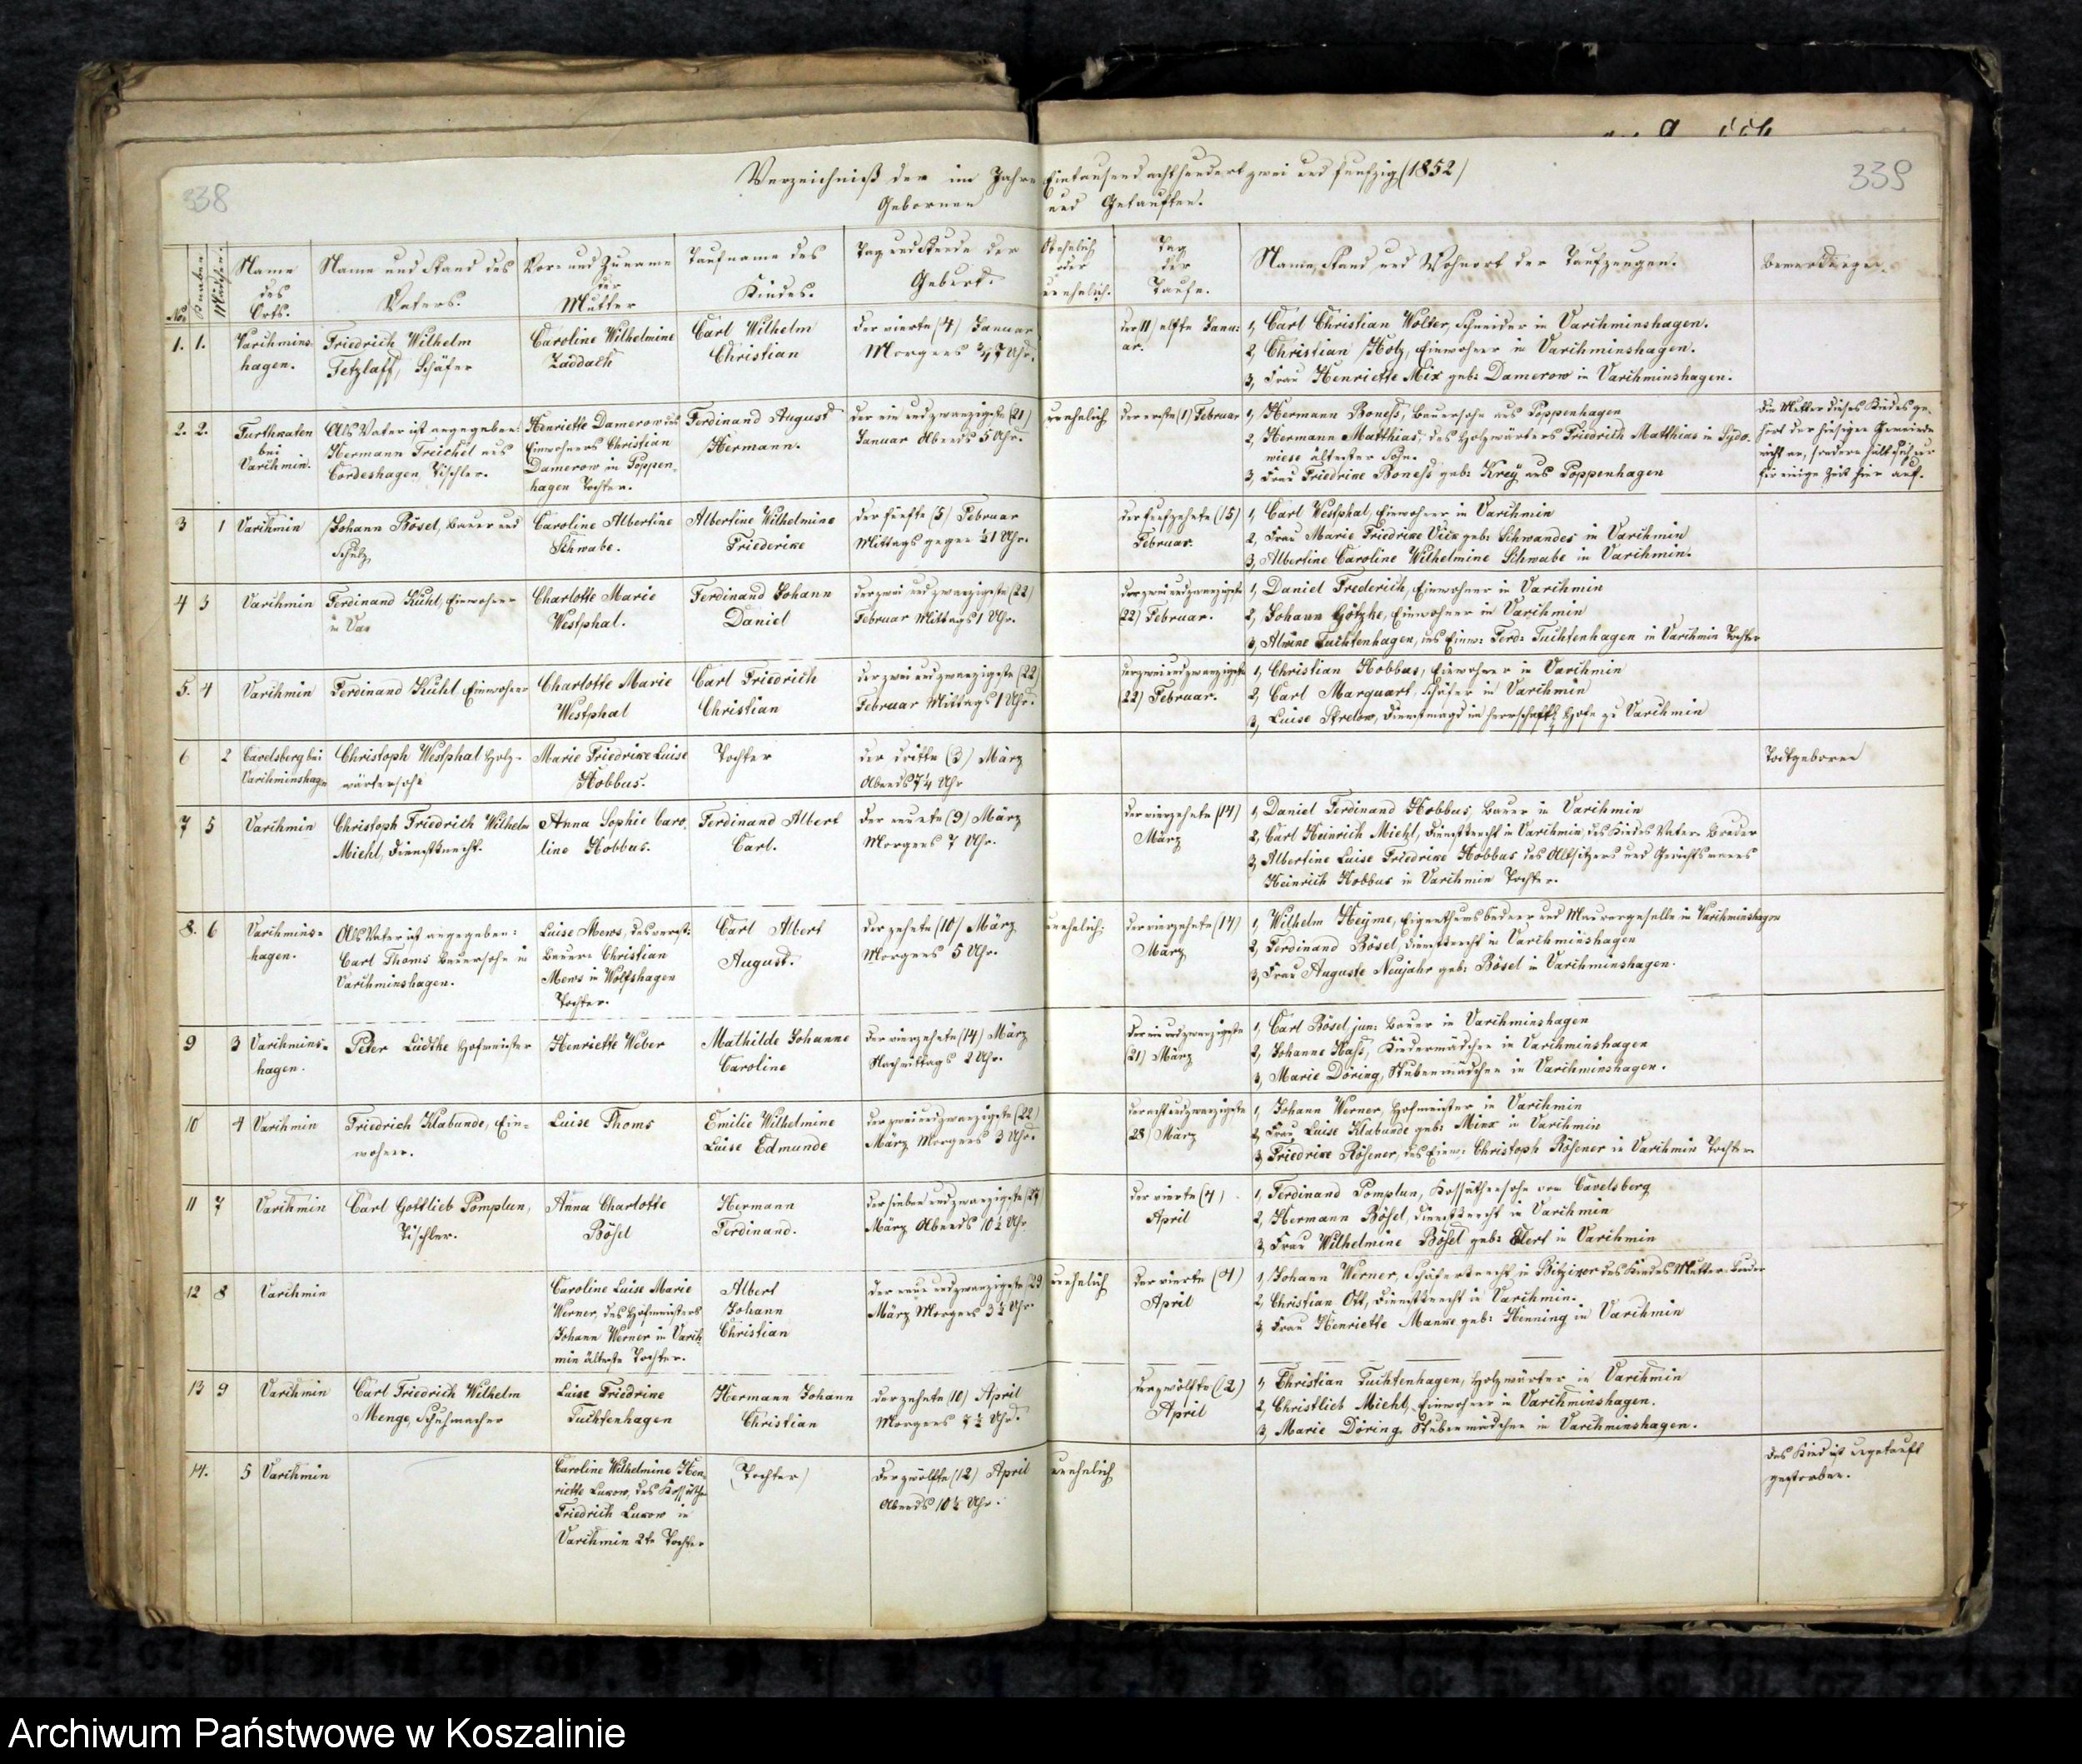 338
339
Verzeichniß der im Jahre Eintausend achthundert zwei und funfzig (1852)
Gebornen und Getauften.
No.
Knaben
Mädchen.
Name des Orts.
Name und Stand des Vaters.
Vor- und Zuname der Mutter
Taufname des Kindes.
Tag und Stunde der Geburt.
Ehelich oder unehelich.
Tag der Taufe.
Name, Stand und Wohnort der Taufzeugen.
Bemerkungen.
1. 1.
Varchmins-
hagen.
Friedrich Wilhelm
Tetzlaff, Schäfer
Caroline Wilhelmine
Zaddach
Carl Wilhelm
Christian
Der vierte (4) Januar
Morgens Uhr.
der (11) elfte Janu:
ar.
1, Carl Christian Wolter, Schneider in Varchminshagen.
2, Christian Hotz, Einwohner in Varchminshagen.
3, Frau Henriette Mix geb: Damerow in Varchminshagen.
2. 2.
Furthkaten
bei
Varchmin.
Als Vater ist angegeben:
Hermann Treichel aus
Cordeshagen, Tischler.
Henriette Damerow des
Einwohners Christian
Damerow in Poppen-
hagen Tochter.
Ferdinand August
Hermann.
der ein und zwanzigste (21)
Januar Abends 5 Uhr.
unehelich
der erste (1) Februar
1, Hermann Boness, Bauersohn aus Poppenhagen
2, Hermann Matthias, des Holzwärters Friedrich Matthias in Sydo-
wiese ältester Sohn.
3, Frau Friedrike Boness geb: Krey aus Poppenhagen
Die Mutter dieses Kindes ge-
hört der hiesigen Gemeinde
nicht an, sondern hält sich nur
für einige Zeit hier auf.
3 1
Varchmin
Johann Bösel, Bauer und
Schulz
Caroline Albertine
Schwabe.
Albertine Wilhelmine
Friederike
der fünfte (5) Februar
Mittags gegen Uhr.
der funfzehnte (15)
Februar.
1, Carl Westphal, Einwohner in Varchmin
2, Frau Marie Friedrike Vick geb: Schwandes in Varchmin
3, Albertine Caroline Wilhelmine Schwabe in Varchmin.
4 3
Varchmin
Ferdinand Kühl, Einwohner
in Var
Charlotte Marie
Westphal.
Ferdinand Johann
Daniel
der zwei und zwanzigste (22)
Februar Mittags 1 Uhr.
der zwei und zwanzigste
(22) Februar.
1, Daniel Frederich, Einwohner in Varchmin
2, Johann Götzke, Einwohner in Varchmin
3, Alwine Tuchtenhagen, des Einw: Ferd: Tuchtenhagen in Varchmin Tochter
5. 4
Varchmin
Ferdinand Kühl Einwohner
Charlotte Marie
Westphal
Carl Friedrich
Christian
der zwei und zwanzigste (22)
Februar Mittags 1 Uhr.
der zwei und zwanzigste
(22) Februar.
1, Christian Hobbus, Einwohner in Varchmin
2, Carl Marquart, Schäfer in Varchmin
3, Luise Strelow, Dienstmagd im herrschaftl: Hofe zu Varchmin
6 2
Cavelsberg bei
Varchminshagen
Christoph Westphal Holz-
wärtersohn
Marie Friedrike Luise
Hobbus.
Tochter
der dritte (3) März
Abends Uhr
Todtgeboren
7 5
Varchmin
Christoph Friedrich Wilhelm
Miehl, Dienstknecht.
Anna Sophie Caro-
line Hobbus.
Ferdinand Albert
Carl.
Der neunte (9) März
Morgens 7 Uhr.
der vierzehnte (14)
März
1, Daniel Ferdinand Hobbus, Bauer in Varchmin
2, Carl Heinrich Miehl, Dienstknecht in Varchmin, des Kindes Vaters Bruder
3, Albertine Luise Friedrike Hobbus des Altsitzers und Gerichtsmanns
Heinrich Hobbus in Varchmin Tochter.
8. 6
Varchmins-
hagen.
Als Vater ist angegeben:
Carl Thoms Bauersohn in
Varchminshagen.
Luise Mews, des verst:
Bauern Christian
Mews in Wolfshagen
Tochter.
Carl Albert
August.
Der zehnte (10) März
Morgens 5 Uhr.
unehelich:
der vierzehnte (14)
März
1, Wilhelm Heyme, Eigenthumsbudner und Maurergeselle in Varchminshagen
2, Ferdinand Bösel, Dienstknecht in Varchminshagen
3, Frau Auguste Neujahr geb: Bösel in Varchminshagen.
9 3
Varchmins-
hagen.
Peter Lüdtke Hofmeister
Henriette Weber
Mathilde Johanne
Caroline
Der vierzehnte (14) März
Nachmittags 2 Uhr.
Der ein und zwanzigste
(21) März
1, Carl Bösel, jun: Bauer in Varchminshagen
2, Johanne Hass, Kindermädchen in Varchminshagen
3, Marie Döring, Stubenmädchen in Varchminshagen.
10 4
Varchmin
Friedrich Klabunde, Ein-
wohner.
Luise Thoms
Emilie Wilhelmine
Luise Edmunde
Der zwei und zwanzigste (22)
März Morgens 3 Uhr.
der acht und zwanzigste
28) März
1, Johann Werner, Hofmeister in Varchmin
2, Frau Luise Klabunde geb: Minx in Varchmin
3, Friedrike Rösener, des Einw: Christoph Rösener in Varchmin Tochter
11 7
Varchmin
Carl Gottlieb Pomplun,
Tischler.
Anna Charlotte
Bösel
Hermann
Ferdinand.
Der sieben und zwanzigste (27)
März Abends 10½ Uhr
der vierte (4)
April
1, Ferdinand Pomplun, Kossäthensohn von Cavelsberg
2, Hermann Bösel, Dienstknecht in Varchmin
3, Frau Wilhelmine Bösel geb: Elert in Varchmin
12 8
Varchmin
Caroline Luise Marie
Werner, des Hofmeisters
Johann Werner in Varch-
min älteste Tochter.
Albert
Johann
Christian
Der neun und zwanzigste (29
März Morgens 3½ Uhr.
unehelich
der vierte (4)
April
1, Johann Werner, Schäferknecht in Bitziker des Kindes Mutter Bruder
2, Christian Ott, Dienstknecht in Varchmin.
3, Frau Henriette Manke geb: Henning in Varchmin
13 9
Varchmin
Carl Friedrich Wilhelm
Menge, Schuhmacher
Luise Friedrike
Tuchtenhagen
Hermann Johann
Christian
der zehnte (10) April
Morgens 7½ Uhr.
der zwölfte (12)
April
1, Christian Tuchtenhagen, Holzwärter in Varchmin
2, Christlieb Miehl, Einwohner in Varchminshagen.
3, Marie Döring, Stubenmädchen in Varchminshagen.
14. 5
Varchmin
Caroline Wilhelmine Hen-
riette Lukow, des Kossäthen
Friedrich Lukow in
Varchmin 2te Tochter
(Tochter)
Der zwölfte (12) April
Abends 10½ Uhr.
unehelich
das Kind ist ungetauft
gestorben.
Archiwum Państwowe w Koszalinie